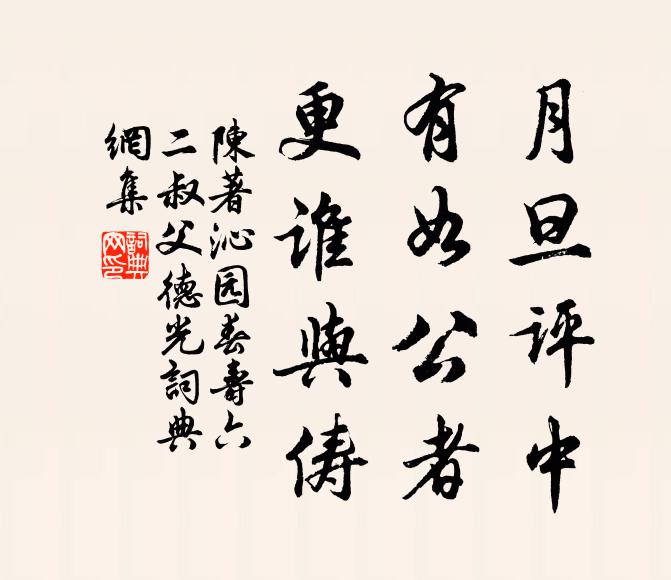 月旦评中
有如公者
更誰與俦
陳著沁园春壽六
二叔父德光詞典
網集
詞典
网印